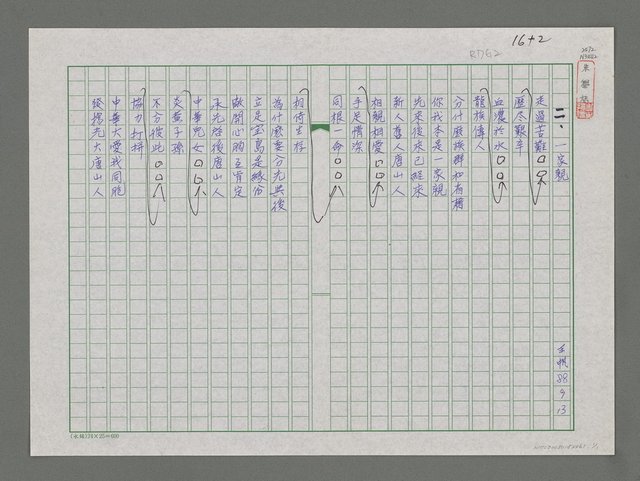 16+2
二、一家親
走過苦難□□
歷尽艱辛
血濃於水□□
龍族傳人
分什麼族群和省籍
你我本是一家親
先來後來已經來
新人舊人唐山人
相親相愛□□
手足情深
同根一命□□□
相倚生存
為什麼要分先與後
立足宝島是緣份
敞開心胸互肯定
承先啟後唐山人
中華兒女□□
炎黃子孫
不分彼此□□□
協力打拼
中華大愛我同胞
發揚光大唐山人
88
9
13
24×25=600